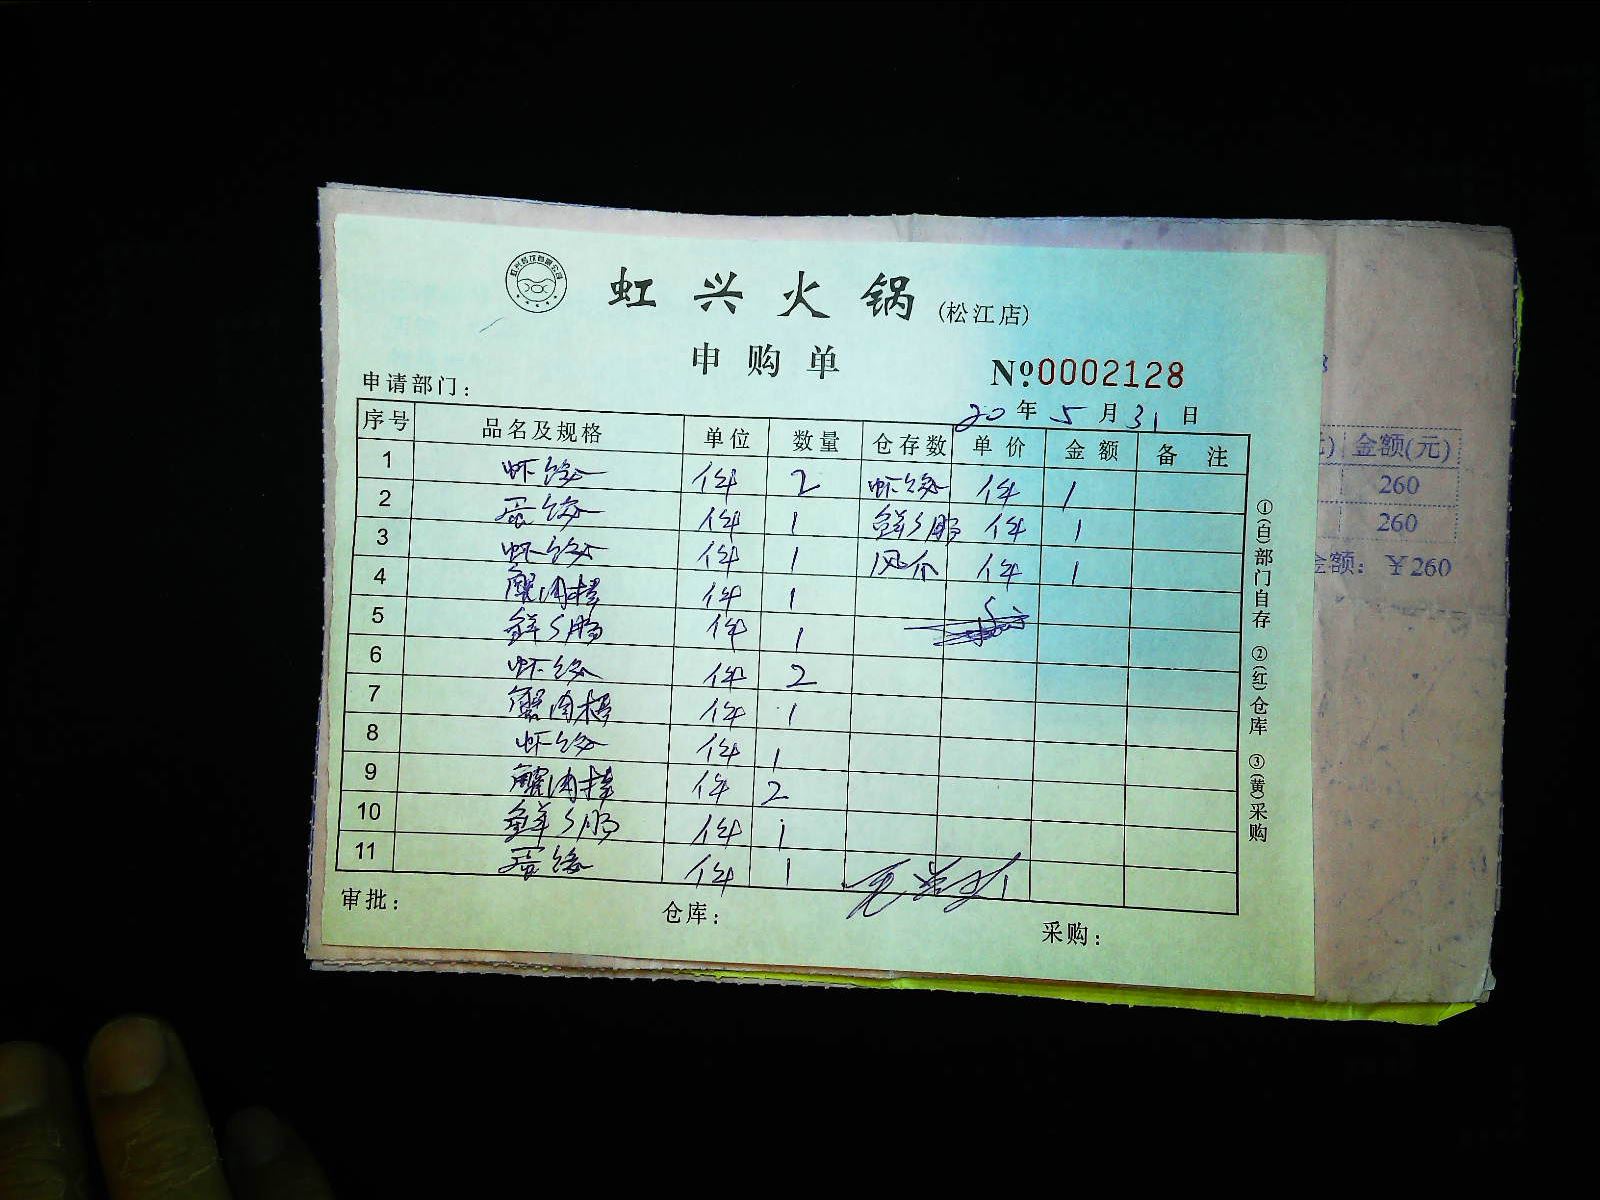 虹兴火锅(松江店)
申购单
№0002128
申请部门：
20年5月31日
序号 品名及规格 单位 数量 仓存数 单价 金额 备注
1 虾饺 件 2 虾饺 件 1
2 蛋饺 件 1 鲜々肠 件 1
3 虾饺 件 1 件 1
4 蟹肉棒 件 1
5 鲜々肠 件 1
6 虾饺 件 2
7 蟹肉棒 件 1
8 虾饺 件 1
9 蟹肉棒 件 2
10 鲜々肠 件 1
11 蛋饺 件 1
审批：
仓库：
采购：
①(白)部门自存 ②(红)仓库 ③(黄)采购
金额(元)
260
260
金额：￥260